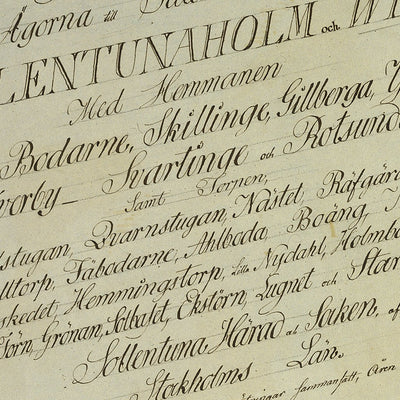 Ägorna till
LENTUNAHOLM och
Med Hemmanen
Bodarne, Skillinge, Gillberga,
Svartinge och Rotsund
Samt Torpen,
stugan, Qvarnstugan, Nästet, Räfgär
lltorp, Fäbodarne, Ahlboda, Boäng,
skedet, Hemmingstorp, Lilla Nydahl, Holmbo
Törn, Grönan, Solbalet, Ekstörn, Lugnet och
Sollentuna Härad och Saken, af
Stockholms Län.
sammanfatt, Åren